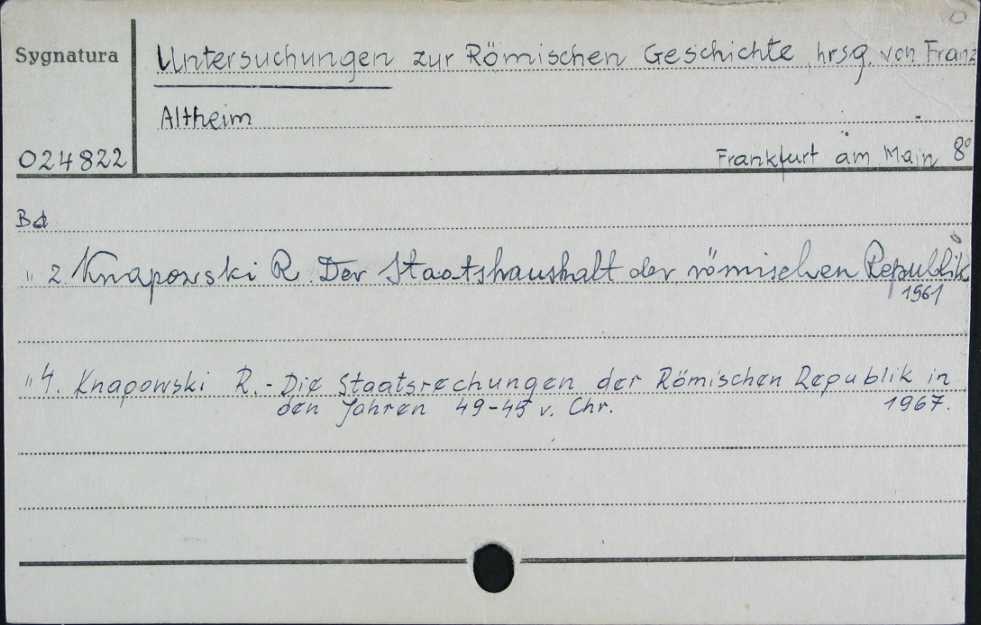 Sygnatura
Untersuchungen zur Römischen Geschichte hrsg. von Franz
Altheim
024822
Frankfurt am Main 8°
Bd
" 2 Knapowski R. Der Staatshaushalt der römischen Republik
1961
" 4. Knapowski R. - Die Staatsrechungen der Römischen Republik in
den Jahren 49-45 v. Chr. 1967.